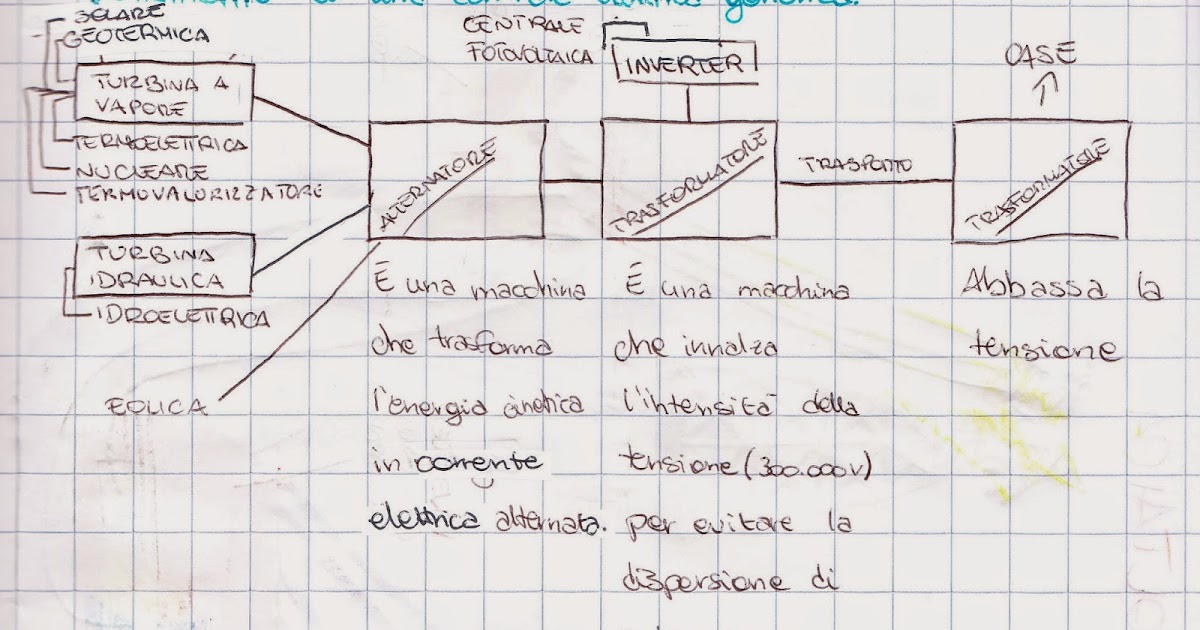 centrale elettrica generica.
SOLARE
GEOTERMICA
TURBINA A
VAPORE
TERMOELETTRICA
NUCLEARE
TERMOVALORIZZATORE
TURBINA
IDRAULICA
IDROELETTRICA
EOLICA
ALTERNATORE
È una macchina
che trasforma
l'energia cinetica
in corrente
elettrica alternata.
CENTRALE
FOTOVOLTAICA
INVERTER
TRASFORMATORE
È una macchina
che innalza
l'intensità della
tensione (300.000V)
per evitare la
dispersione di
TRASPORTO
CASE
TRASFORMATORE
Abbassa la
tensione